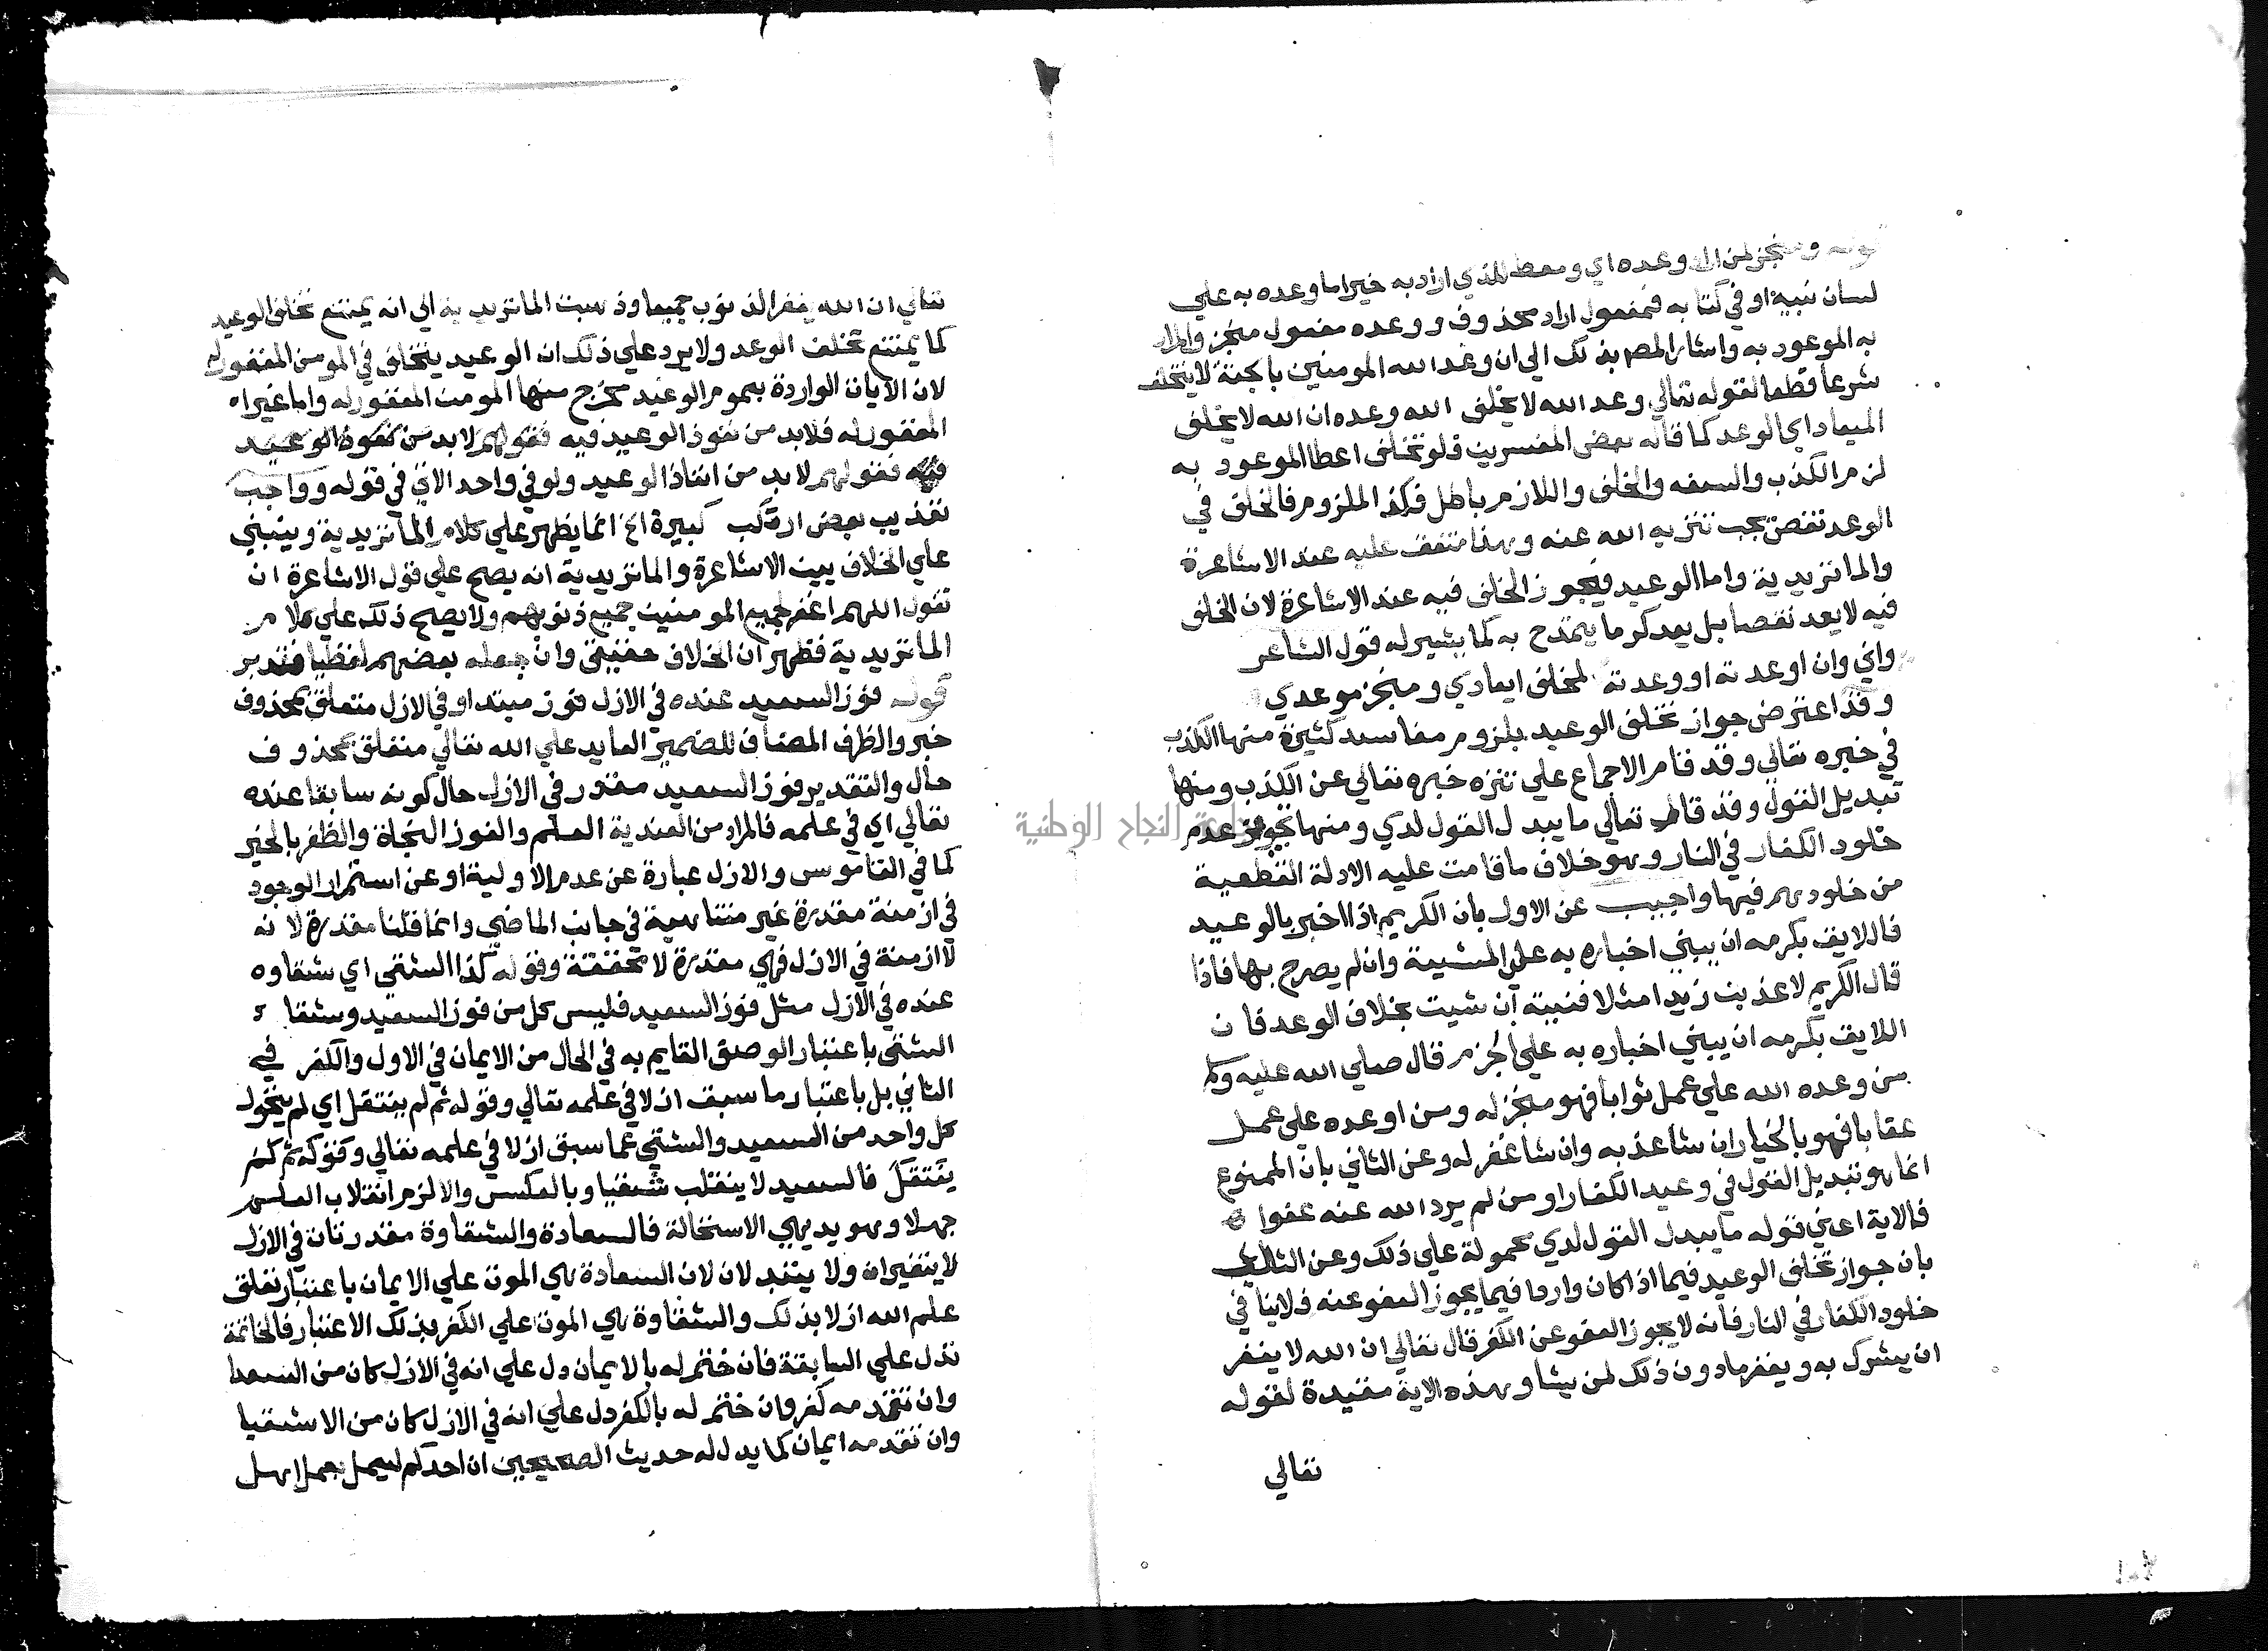 قوله ومنجز لمن اراد وعده اي ومعط للذي اراد به خيرا ما وعده به علي
لسان نبيه او في كتابه فمفعول اراد محذوف ووعده مفعول منجز والمراد
به الموعود به واشار المصر بذلك الي ان وعد الله المومنين بالجنة لا يتخلف
شرعا قطعا لقوله تعالي وعد الله لا يخلف الله وعده ان الله لا يخلف
الميعاد اي الوعد كما قاله بعض المفسرين فلو تخلف اعطا الموعود به
لزم الكذب والسفه والخلف واللازم باطل فكذا الملزوم فالخلف في
الوعد نقص يجب تنزيه الله عنه وهذا متفق عليه عند الاشاعرة
والماتزيدية واما الوعيد فيجوز الخلف فيه عند الاشاعرة لان الخلف
فيه لا يعد نقصا بل يعد كرما يمتدح به كما يشير له قول الشاعر
واني وان اوعدته او وعدته لمخلف ايعادي ومنجز موعدي
وقد اعترض جواز تخلف الوعيد بلزوم مفاسد كثيرة منها الكذب
في خبره تعالي وقد قام الاجماع علي تنزه خبره تعالي عن الكذب ومنها
تبديل القول وقد قال تعالي ما يبدل القول لدي ومنها تجويز عدم
خلود الكفار في النار وهو خلاف ما قامت عليه الادلة القطعية
من خلودهم فيها واجيب عن الاول بان الكريم اذا اخبر بالوعيد
فاللايق بكرمه ان يبني اخباره به علي المشيية وان لم يصرح بها فاذا
قال الكريم لاعذبن زيدا مثلا فنيته ان شيت بخلاف الوعد فان
اللايق بكرمه ان يبني اخباره به علي الجزم قال صلي الله عليه وسلم
من وعده الله علي عمل ثوابا فهو منجز له ومن اوعده علي عمل
عقابا فهو بالخيار ان شا عذبه وان شا غفر له وعن الثاني بان الممنوع
انما هو تبديل القول في وعيد الكفار او من لم يرد الله عنه عفوا
فالاية اعني قوله ما يبدل القول لدي محمولة علي ذلك وعن الثالث
بان جواز تخلف الوعيد فيما اذا كان واردا فيما يجوز العفو عنه فلا ينافي
خلود الكفار في النار فانه لا يجوز العفو عن الكفر قال تعالي ان الله لا يغفر
ان يشرك به ويغفر ما دون ذلك لمن يشا وهذه الاية مقيدة لقوله
تعالي
تعالي ان الله يغفر الذنوب جميعا وذهبت الماتريدية الي انه يمتنع تخلف الوعيد
كما يمتنع تخلف الوعد ولا يرد علي ذلك ان الوعيد يتخلف في المومن المغفور له
لان الايات الواردة بعموم الوعيد مخرج منها المومن المغفور له واما غير
المغفور له فلا بد من نفوذ الوعيد فيه فقولهم لا بد من نفوذ الوعيد
فقولهم لا بد من انفاذ الوعيد ولو في واحد الاتي في قوله وواجب
تعذيب بعض ارتكب كبيرة الخ انما يظهر علي كلام الماتريدية وينبني
علي الخلاف بين الاشاعرة والماتريدية انه يصح علي قول الاشاعرة ان
تقول اللهم اغفر لجميع المومنين جميع ذنوبهم ولا يصح ذلك علي كلام
الماتريدية فظهر ان الخلاف حقيقي وان جعله بعضهم لفظيا فتدبر
قوله فوز السعيد عنده في الازل فوز مبتدا وفي الازل متعلق بمحذوف
خبر والظرف المضاف للضمير العايد علي الله تعالي متعلق بمحذوف
حال والتقدير فوز السعيد مقدر في الازل حال كونه سابقا عنده
تعالي اي في علمه فالمراد من العندية العلم والفوز النجاة والظفر بالخير
كما في القاموس والازل عبارة عن عدم الاولية او عن استمرار الوجود
في ازمنة مقدرة غير متناهية في جانب الماضي وانما قلنا مقدرة لانه
لا ازمنة في الازل فهي مقدرة لا محققة وقوله كذا الشقي اي شقاوه
عنده في الازل مثل فوز السعيد فليس كل من فوز السعيد وشقا
الشقي باعتبار الوصف القايم به في الحال من الايمان في الاول والكفر في
الثاني بل باعتبار ما سبق ازلا في علمه تعالي وقوله ثم لم ينتقل اي لم يتحول
كل واحد من السعيد والشقي عما سبق ازلا في علمه تعالي وقوله ثم لم
ينتقل فالسعيد لا ينقلب شقيا وبالعكس والا لزم انقلاب العلم
جهلا وهو بديهي الاستحالة فالسعادة والشقاوة مقدرتان في الازل
لا يتغيران ولا يتبدلان لان السعادة هي الموت علي الايمان باعتبار تعلق
علم الله ازلا بذلك والشقاوة هي الموت علي الكفر بذلك الاعتبار فالخاتمة
تدل علي السابقة فان ختم له بالايمان دل علي انه في الازل كان من السعدا
وان تقدمه كفر وان ختم له بالكفر دل علي انه في الازل كان من الاشقيا
وان تقدمه ايمان كما يدل له حديث الصحيحين ان احدكم ليعمل بعمل اهل
جامعة النجاح الوطنية